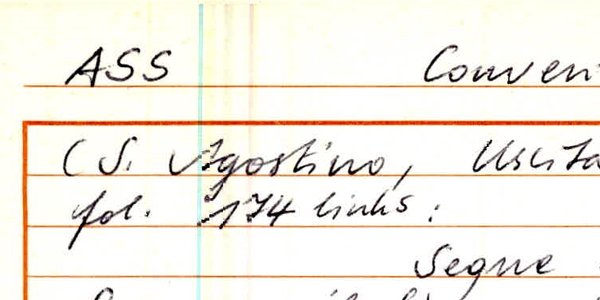 ASS Conven
(S. Agostino, Uscita
fol. 174 links:
Segue